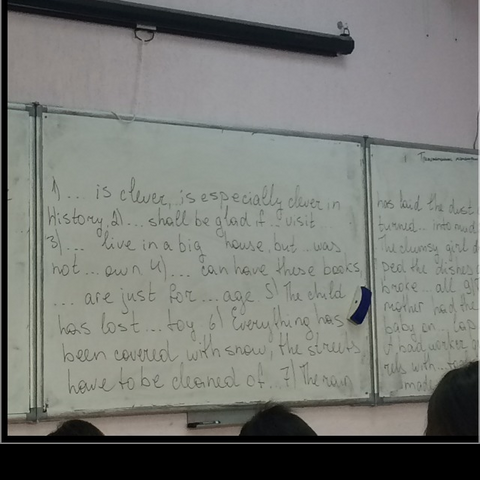 1) ... is clever, is especially clever in
History, 2) ... shall be glad if ... visit
3) ... live in a big house, but ... was
not ... own 4) ... can have these books,
... are just for ... age 5) The child
has lost ... toy 6) Everything has
been covered with snow, the streets
have to be cleaned of ... 7) The rain
has laid the dust
turned ... into mud
The clumsy girl d
ped the dishes
broke ... all 9)
mother had the
baby on ... lap
A bad worker
rels with ...
made